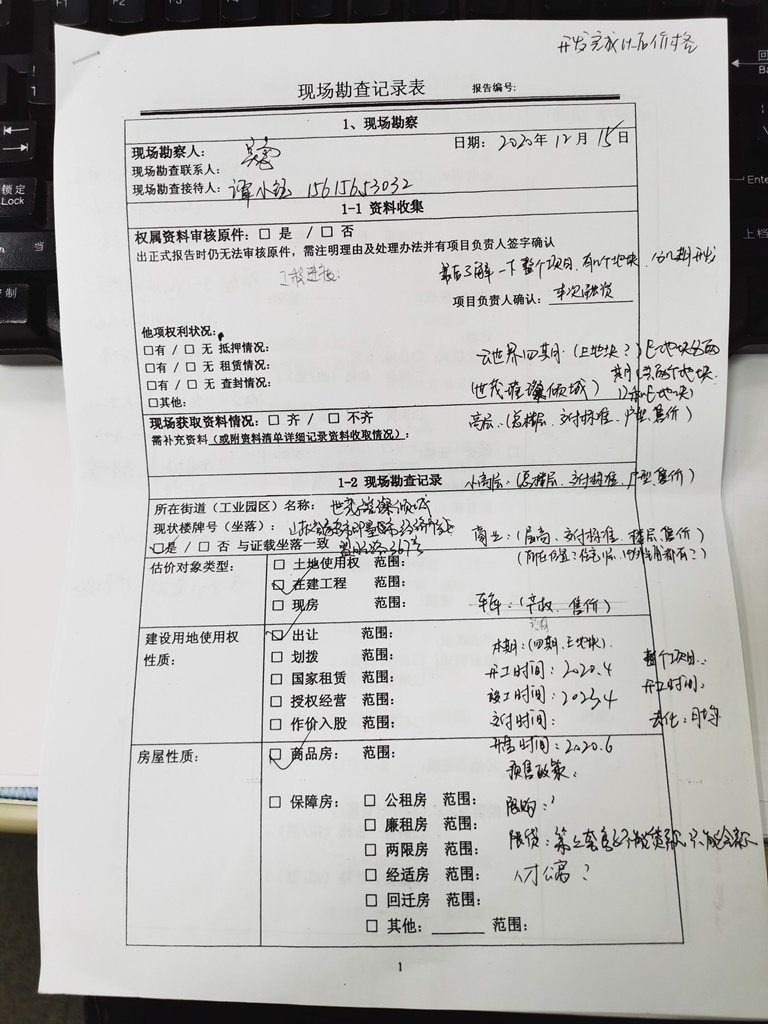 开发完成以后价格
现场勘查记录表 报告编号:
1、现场勘察
现场勘察人: 日期: 2020年12月15日
现场勘查联系人:
现场勘查接待人: 谭小钰 15615653032
1-1 资料收集
权属资料审核原件: □ 是 / □ 否
出正式报告时仍无法审核原件,需注明理由及处理办法并有项目负责人签字确认
工程进度: 了解一下整个项目,有几个地块,分几期开发
项目负责人确认: 本次融资
他项权利状况:
□有 / □ 无 抵押情况: 云世界四期·(上地块?)
□有 / □ 无 租赁情况:
□有 / □ 无 查封情况: (世茂璀璨倾城)
□其他:
现场获取资料情况: □ 齐 / □ 不齐 高层:(总楼层、交付标准、户型、售价)
需补充资料(或附资料清单详细记录资料收取情况):
1-2 现场勘查记录 小高层:(总楼层、交付标准、户型、售价)
所在街道(工业园区)名称: 世茂璀璨倾城
现状楼牌号(坐落): 商业:(层高、交付标准、楼层、售价)
□是 / □ 否 与证载坐落一致 367号
估价对象类型: □ 土地使用权 范围:
□ 在建工程 范围:
□ 现房 范围: 车库:(产权、售价)
建设用地使用权性质: □ 出让 范围: 本期:(四期、上地块).
□ 划拨 范围: 开工时间:2020.4 整个项目:
□ 国家租赁 范围: 竣工时间:2023.4 开工时间:
□ 授权经营 范围: 交付时间: 去化:月均
□ 作价入股 范围: 开盘时间:2020.6
房屋性质: □ 商品房: 范围: 预售政策:
□ 保障房: □ 公租房 范围: 限购:?
□ 廉租房 范围:
□ 两限房 范围: 限贷:
□ 经适房 范围: 人才公寓?
□ 回迁房 范围:
□ 其他: 范围:
1